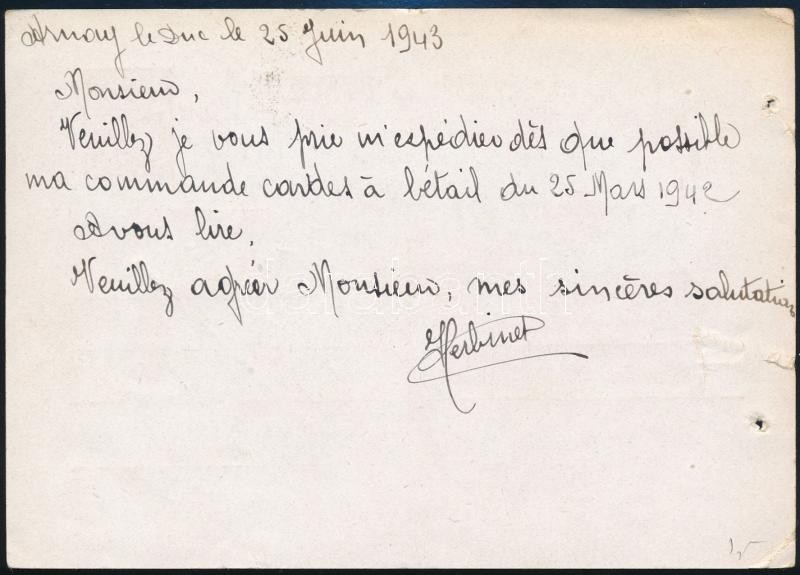 Arnay le Duc le 25 Juin 1943
Monsieur,
Veuillez je vous prie m'espédier dès que possible
ma commande cardes à bétail du 25 Mars 1942
A vous lire,
Veuillez agréer Monsieur, mes sincères salutations
Herbinet
darabanth